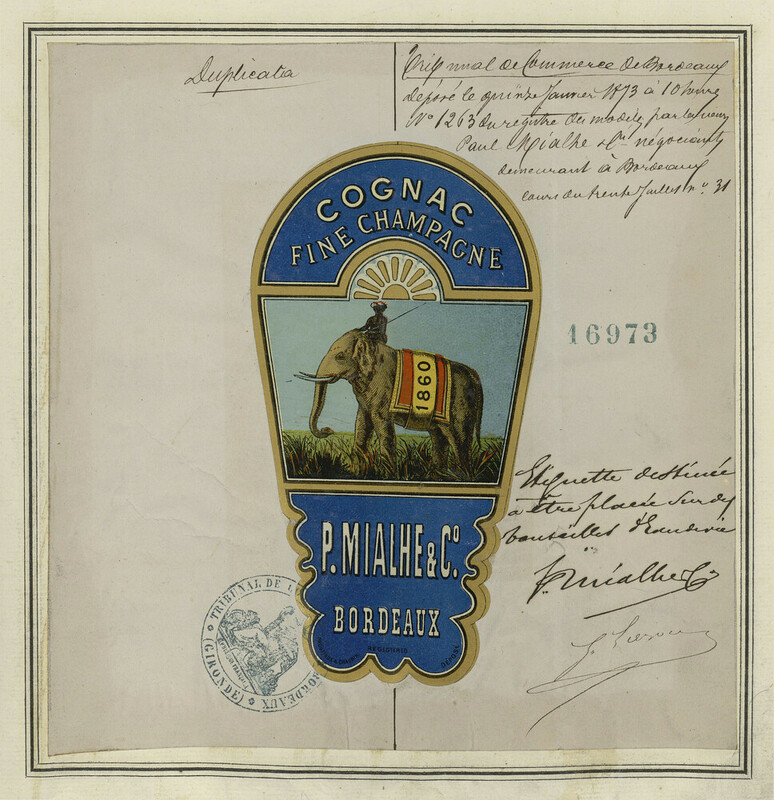 Duplicata
Tribunal de Commerce de Bordeaux
déposé le quinze Janvier 1873 à 10 heures
N° 1263 du registre des modèles par les sieurs
Paul Mialhe & Cie négociants
demeurant à Bordeaux
cours du trente Juillet n° 31
COGNAC
FINE CHAMPAGNE
1860
16973
Etiquette destinée
à être placée sur des
bouteilles d'Eaudevie
P. Mialhe & Co
P. MIALHE & Co.
BORDEAUX
REGISTERED
DÉPOSÉ
TRIBUNAL DE
BORDEAUX
(GIRONDE)